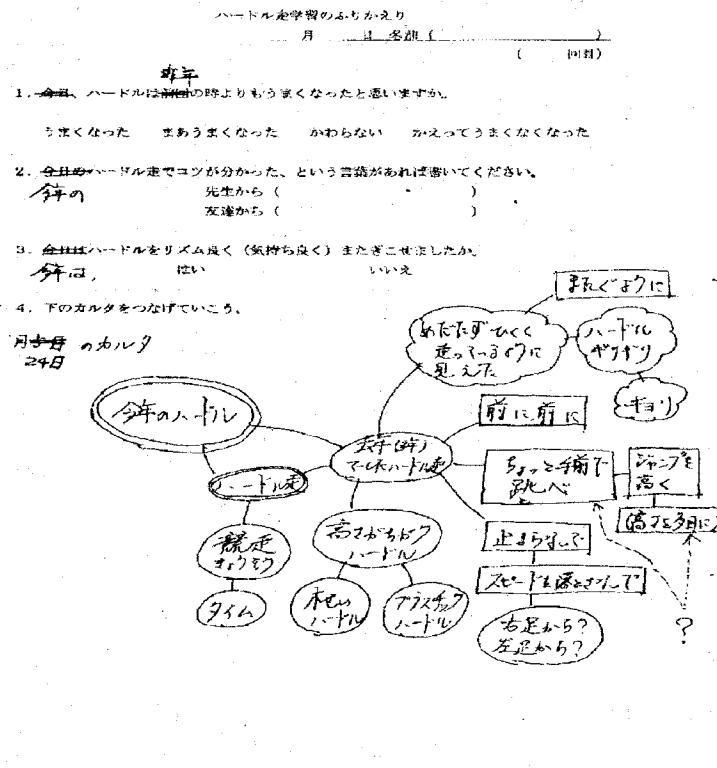 ハードル走学習のふりかえり
月 日 名前( )
( 回目)
昨年
1. 今日、ハードルは前回の時よりもうまくなったと思いますか。
うまくなった まあうまくなった かわらない かえってうまくなくなった
2. 今日のハードル走でコツが分かった、という言葉があれば書いてください。
今年の 先生から( )
友達から( )
3. 今日はハードルをリズム良く(気持ち良く)またぎこせましたか。
今年は, はい いいえ
4. 下のカルタをつなげていこう。
月 のカルタ
24日
今年のハードル
ハードル走
競走
きょうそう
タイム
でしたハードル走
高さがちがう
ハードル
木せい
ハードル
プラスチック
ハードル
めだたずひくく
走っているように
見えた
またぐように
ハードル
ギリギリ
キョリ
前に前に
ちょっと手前で
跳べ
ジャンプを
高く
高さを
止まらないで
スピードを落とさないで
右足から?
左足から?
?